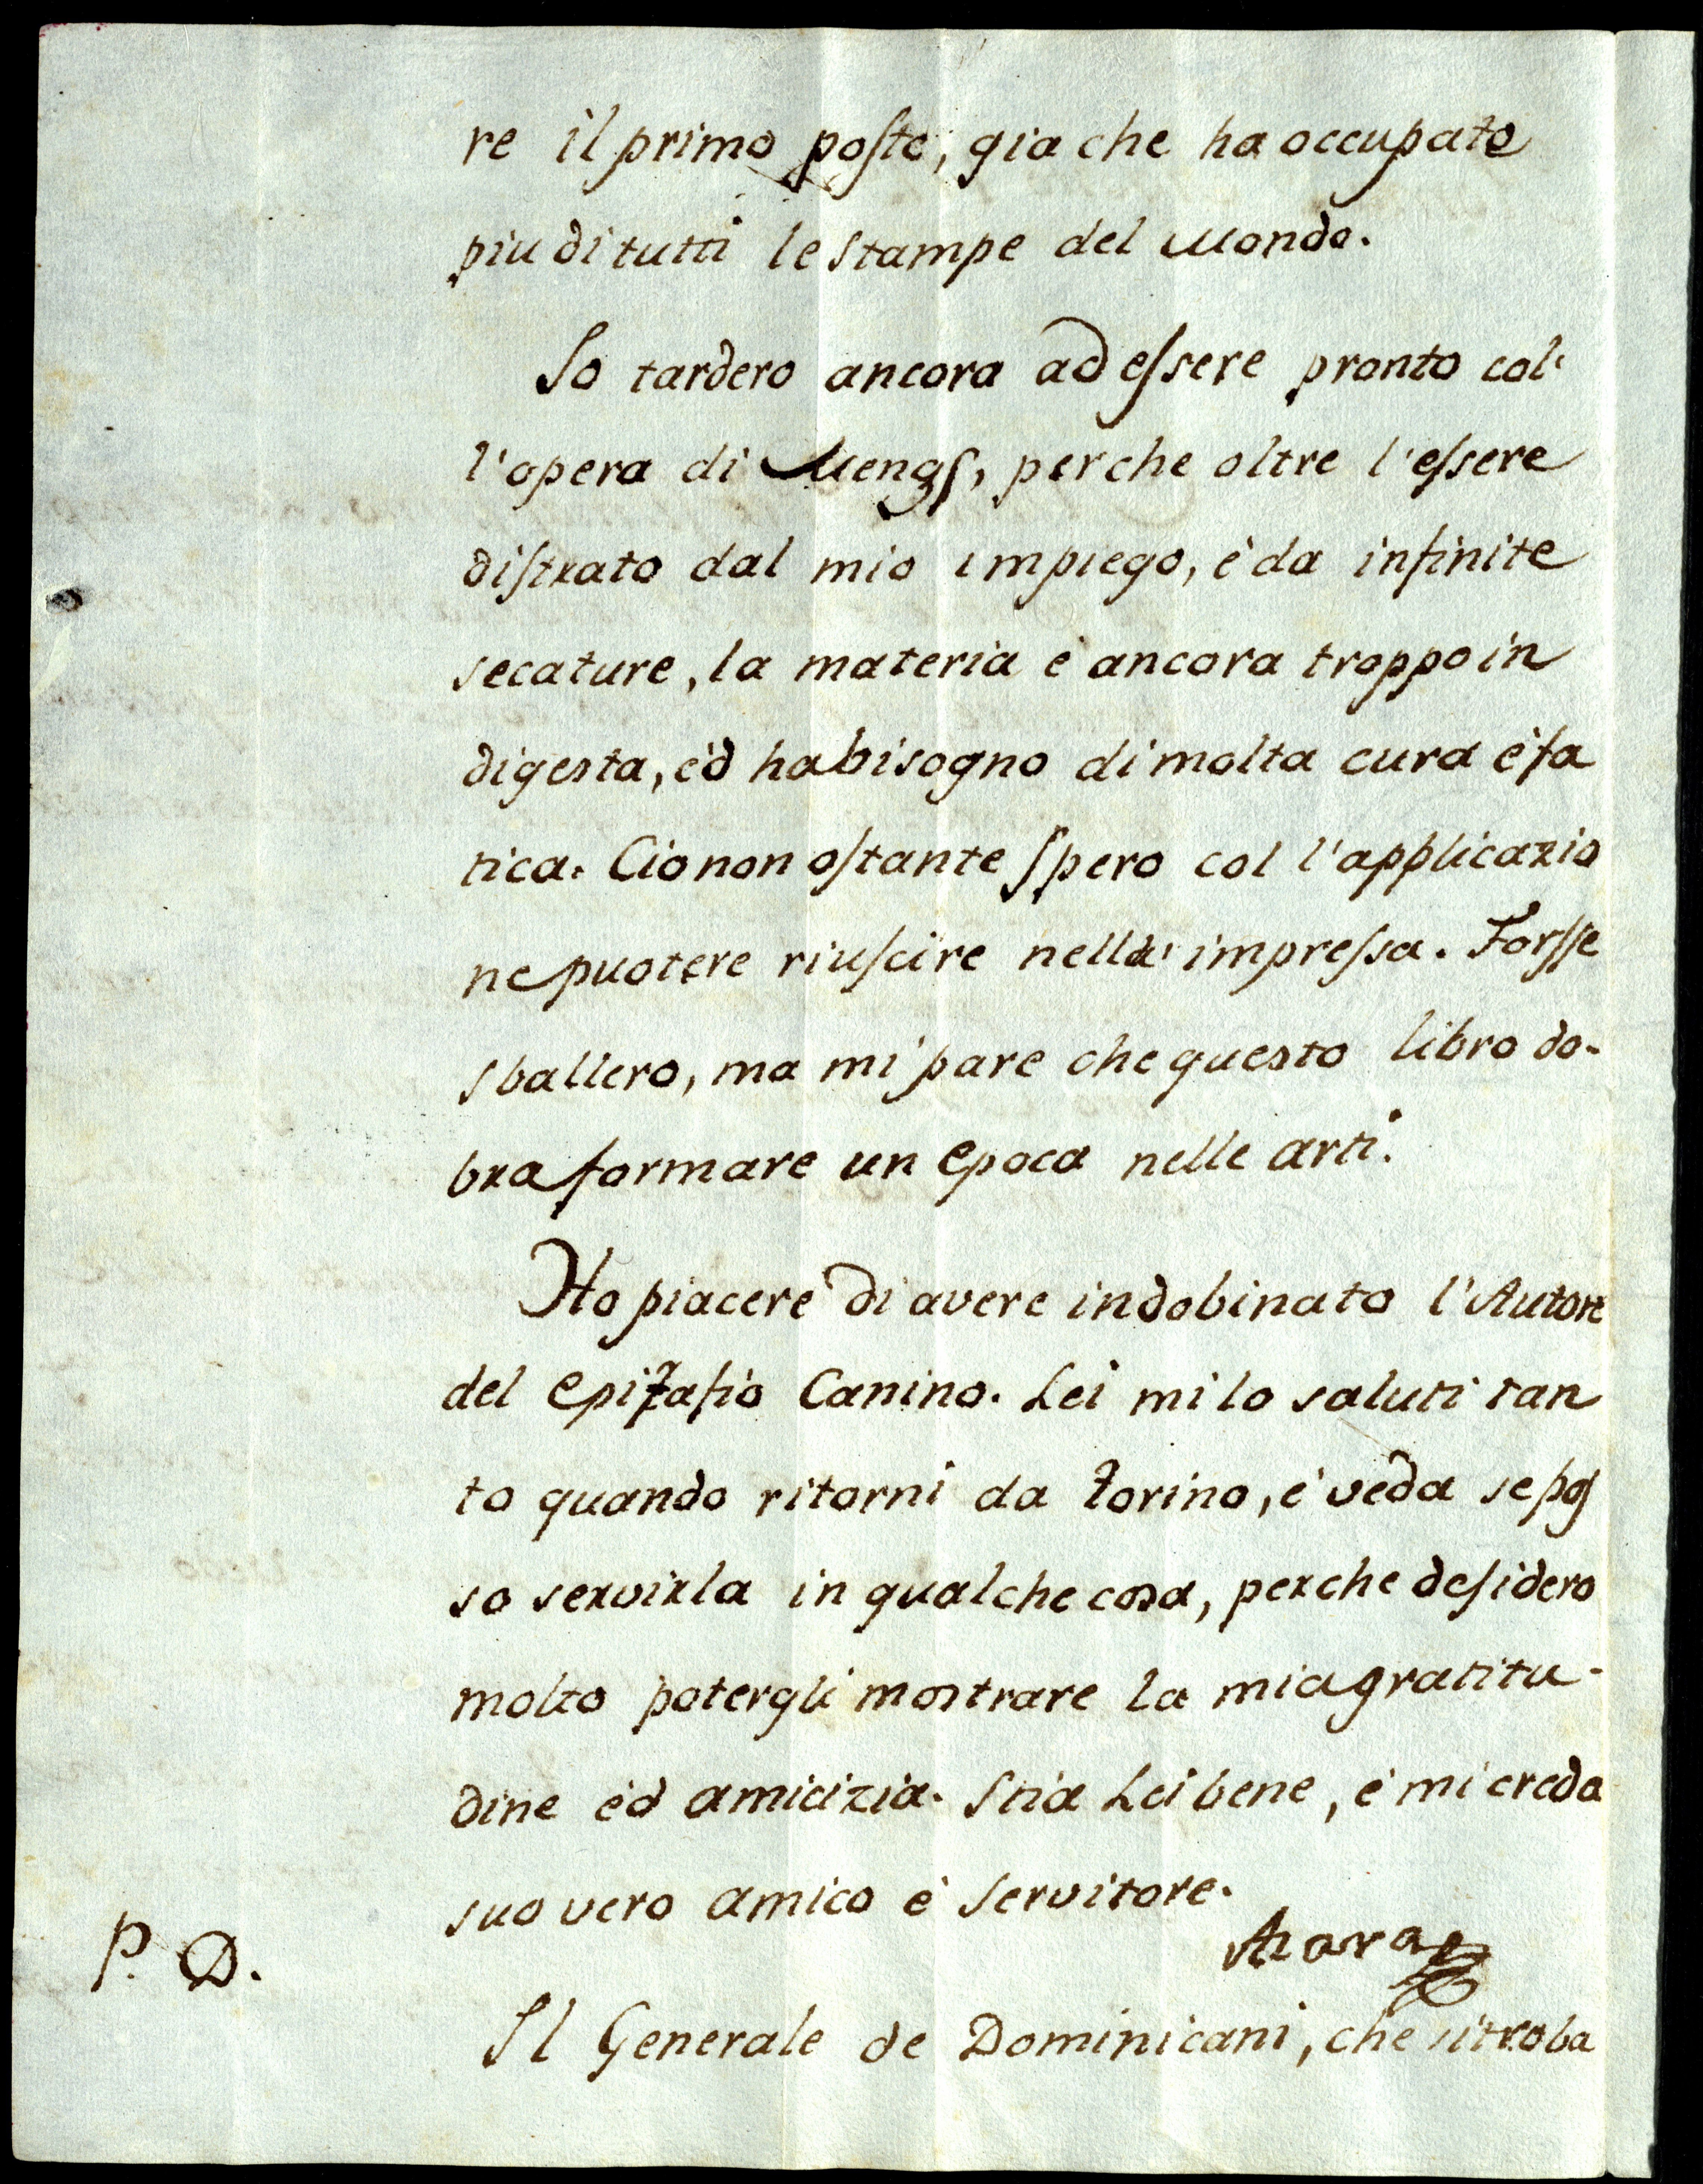 re il primo posto, gia che ha occupato
piu di tutti le stampe del Mondo.
Io tardero ancora ad essere pronto col'
l'opera di Mengs, perche oltre l'essere
distrato dal mio impiego, è da infinite
secature, la materia è ancora troppo in
digesta, èd ha bisogno di molta cura è fa
tica. Cio non ostante spero col l'applicazio
ne puotere riuscire nella impressa. Forsse
sballero, ma mi pare che questo libro do-
bra formare un epoca nelle arti.
Ho piacere di avere indobinato l'Autore
del epitafio Canino. Lei mi lo saluti tan
to quando ritorni da Torino, è veda se pos
so servirla in qualche cosa, perche desidero
molto potergli mostrare la mia gratitu-
dine èd amicizia. Stia Lei bene, è mi creda
suo vero amico è servitore.
Azara
P. D.
Il Generale de Dominicani, che si troba